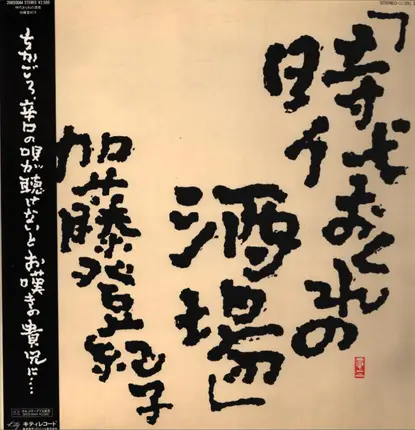 「時代おくれの
酒場」
加藤登紀子
ちかごろ、辛口の唄が聴けないとお嘆きの貴兄に‥‥
STEREO
キティレコード